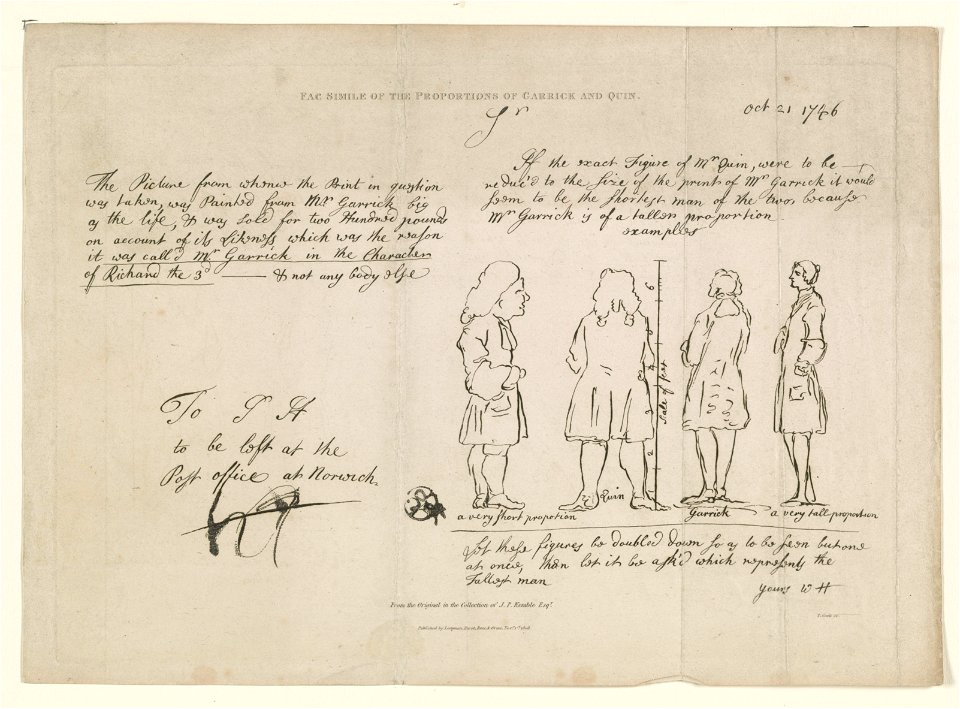 FAC SIMILE OF THE PROPORTIONS OF GARRICK AND QUIN.
Oct 21 1746
Sr
The Picture from whence the Print in question
was taken, was Painted from Mr Garrick big
as the life, & was sold for two Hundred pounds
on account of its Likeness which was the reason
it was call'd Mr Garrick in the Character
of Richard the 3d & not any body else
If the exact Figure of Mr Quin, were to be
reduc'd to the size of the print of Mr Garrick it would
seem to be the shortest man of the two, because
Mr Garrick is of a taller proportion
examples
6
5
4
3
2
Scale of feet
To J H
to be left at the
Post office at Norwich
a very short propotion
Quin
Garrick
a very tall proportion
Let these figures be doubled down so as to be seen but one
at once, than let it be ask'd which represents the
Tallest man
yours W H
From the Original in the Collection of J. P. Kemble Esqr.
Published by Longman, Hurst, Rees & Orme,
T. Cook sc.